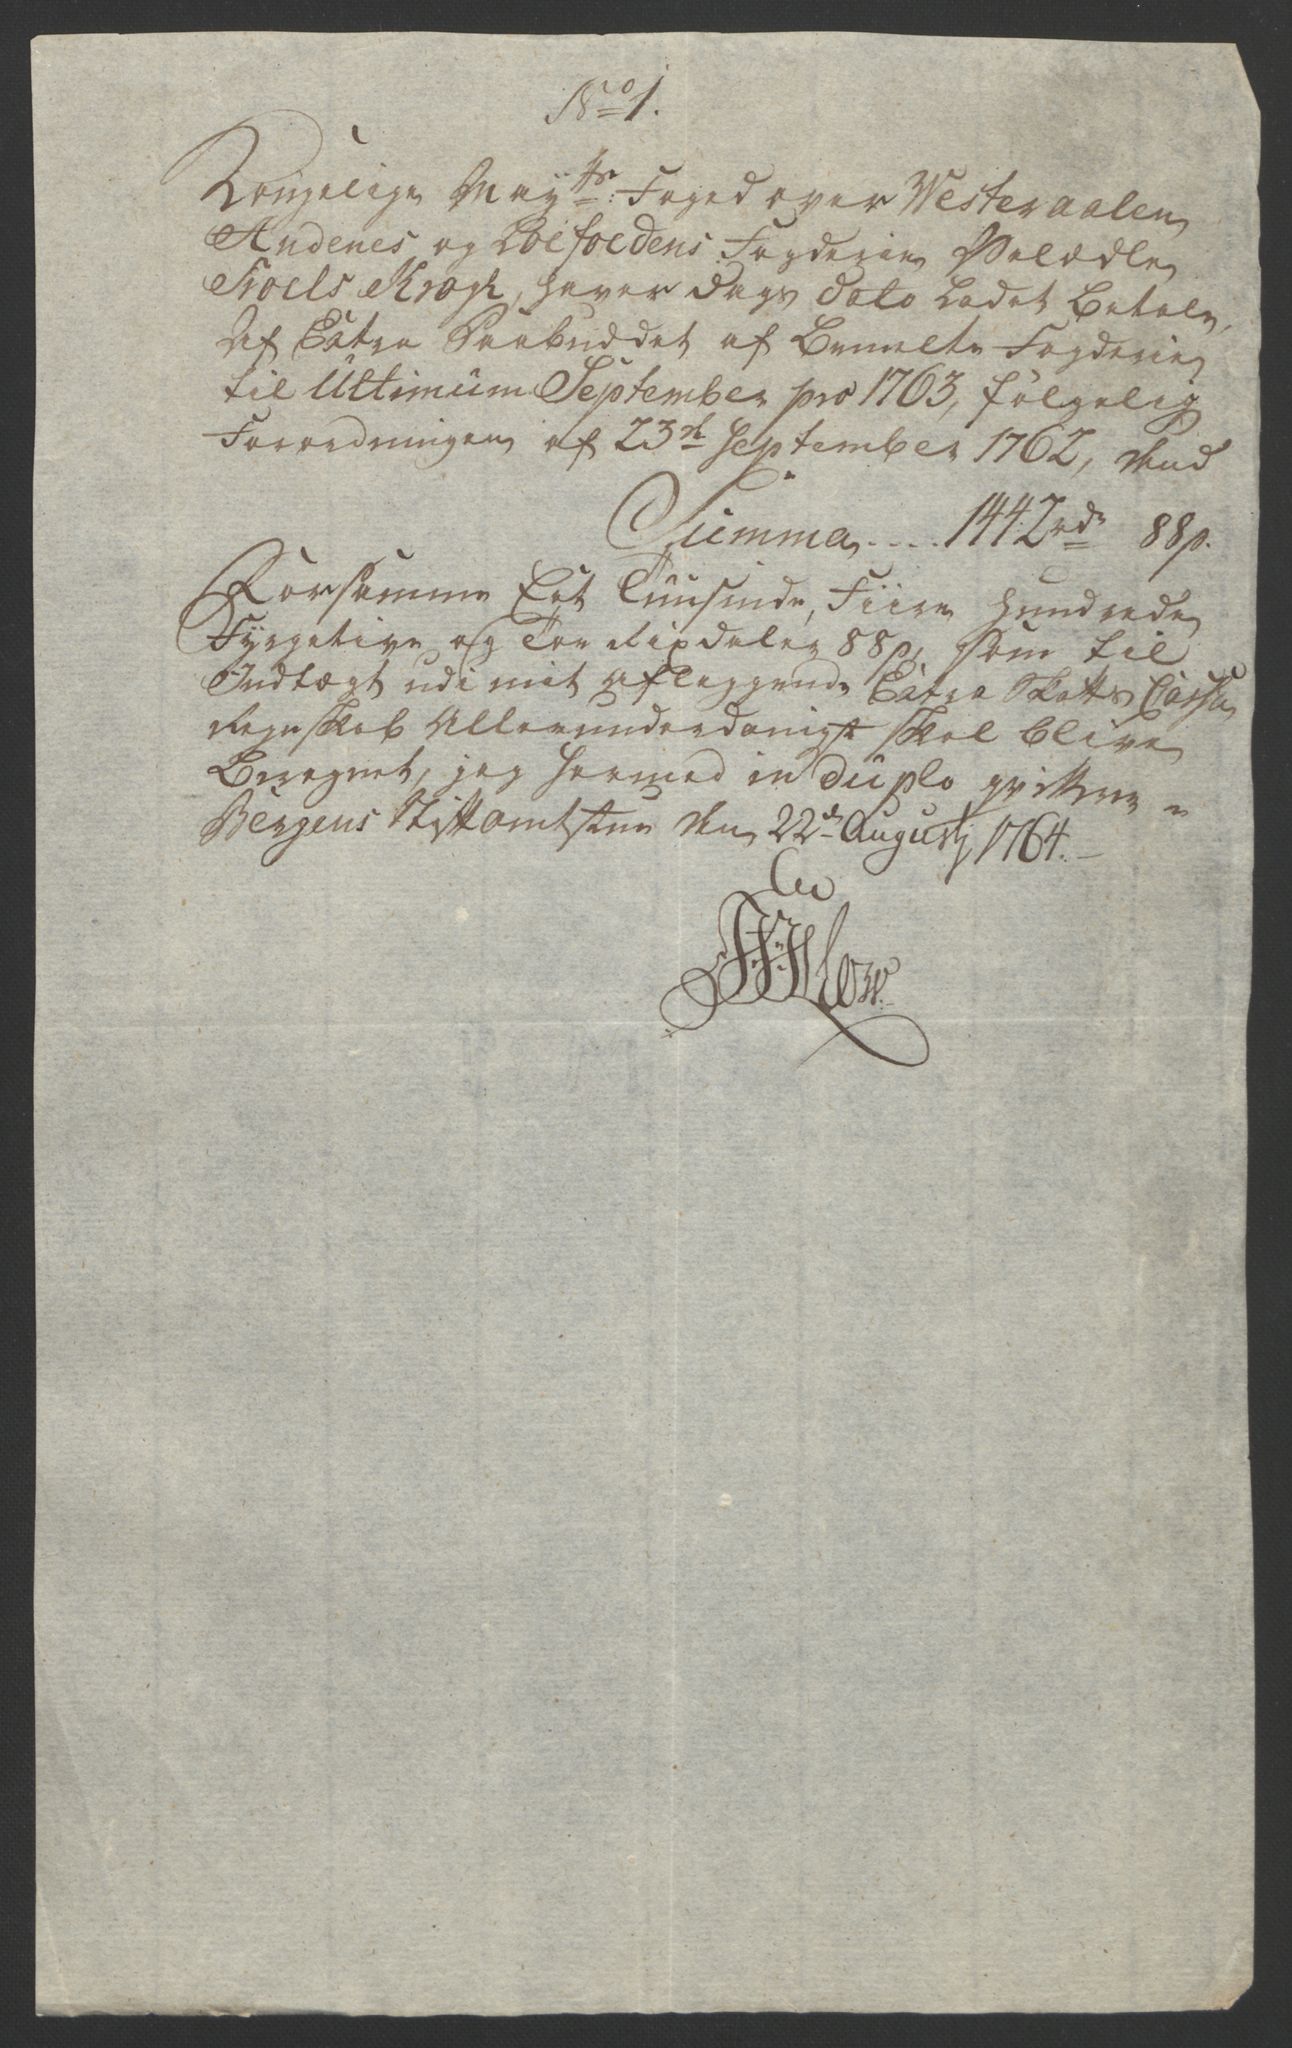 No 1.
Kongelige Mayts Foged over Westeraalen
Andenes og Loefoedens Fogderie Velædle
Troels Krogh, haver dags dato Ladet Betale,
Af Extra Paabuddet af Bemelte Fogderie
til Ultimum September pro 1763, følgelig
Forordningen af 23de September 1762, med
Summa .... 1442 rd 88 s.
Hvorsamme Eet Tuusinde, Fiire hundrede
Fyrgetive og Toe Rixdaler 88 s, som til
Indtægt udi mit aflæggende Extra Skatts Cassa
Regnskab Allerunderdanigst skal blive
Beregnet, jeg hermed in duplo qvitterer
Bergens Stiftamtstue den 22de Augustj 1764.